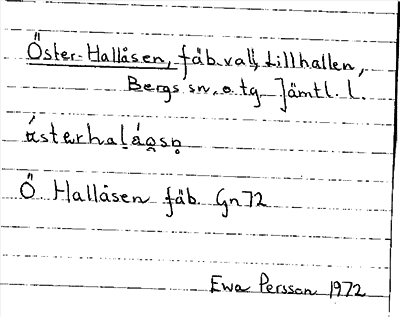 Öster-Hallåsen, fäb.vall, Lillhallen,
Bergs sn. o. tg. Jämtl. l.
Ö Hallåsen fäb. Gn 72
Ewa Persson 1972